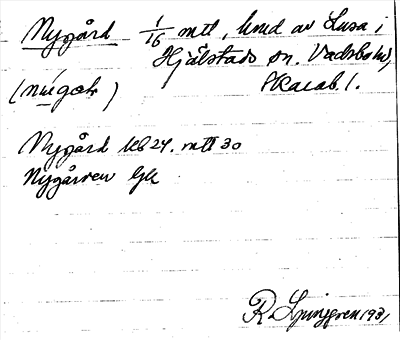 Nygård 1/16 mtl, lund av Lusa i
Hjälstads sn. Vadsbo hd,
Skarab. l.
Nygård kb 24. mtl 30
Nygården Gk
R. Ljunggren 1931